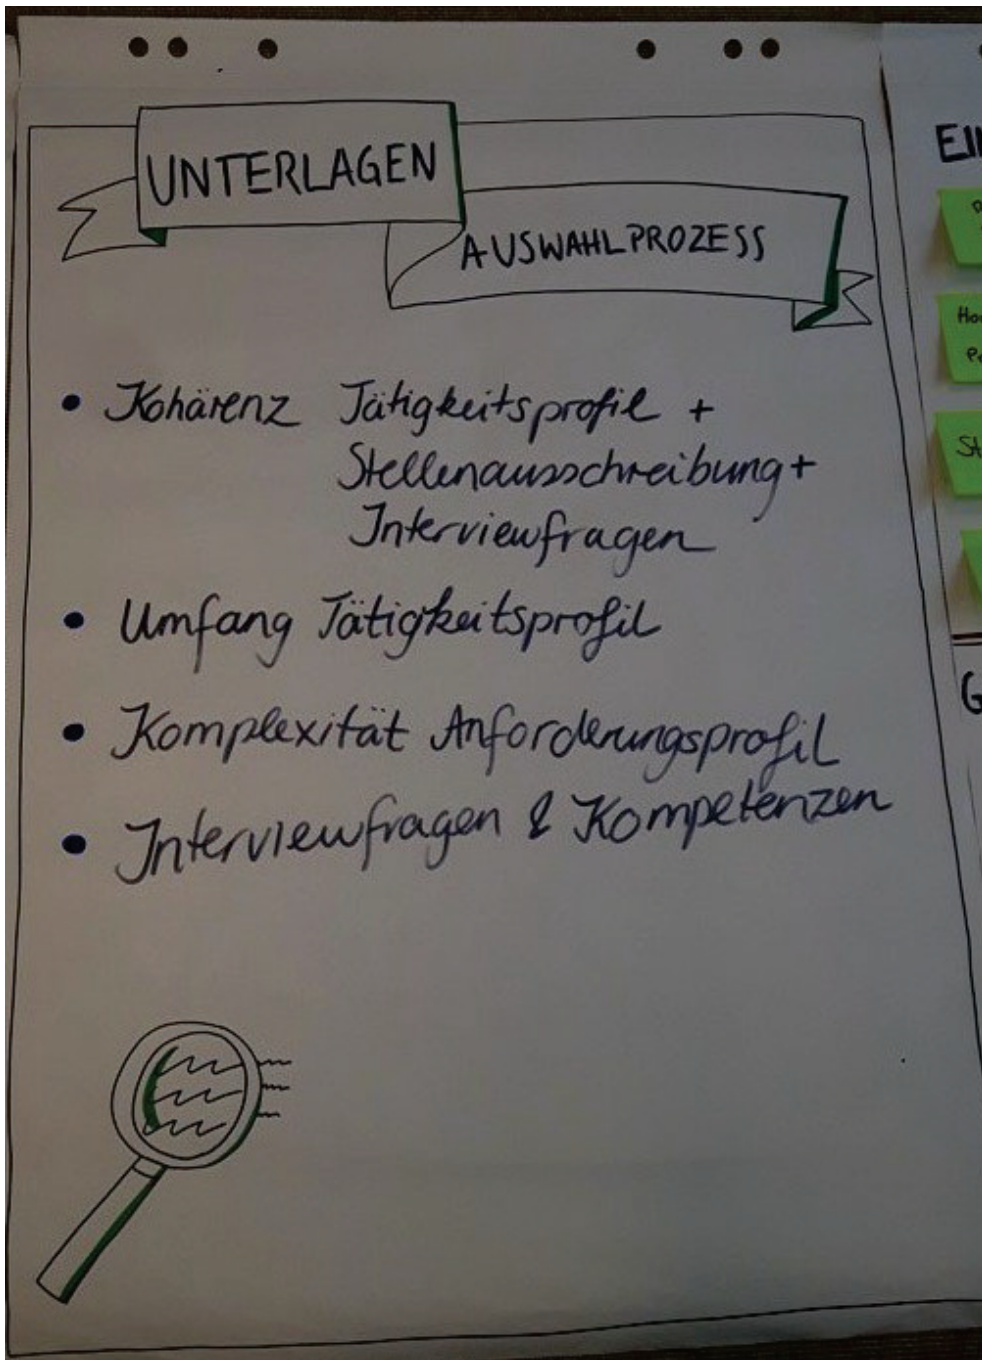 UNTERLAGEN
AUSWAHLPROZESS
• Kohärenz Tätigkeitsprofil +
Stellenausschreibung +
Interviewfragen
• Umfang Tätigkeitsprofil
• Komplexität Anforderungsprofil
• Interviewfragen & Kompetenzen